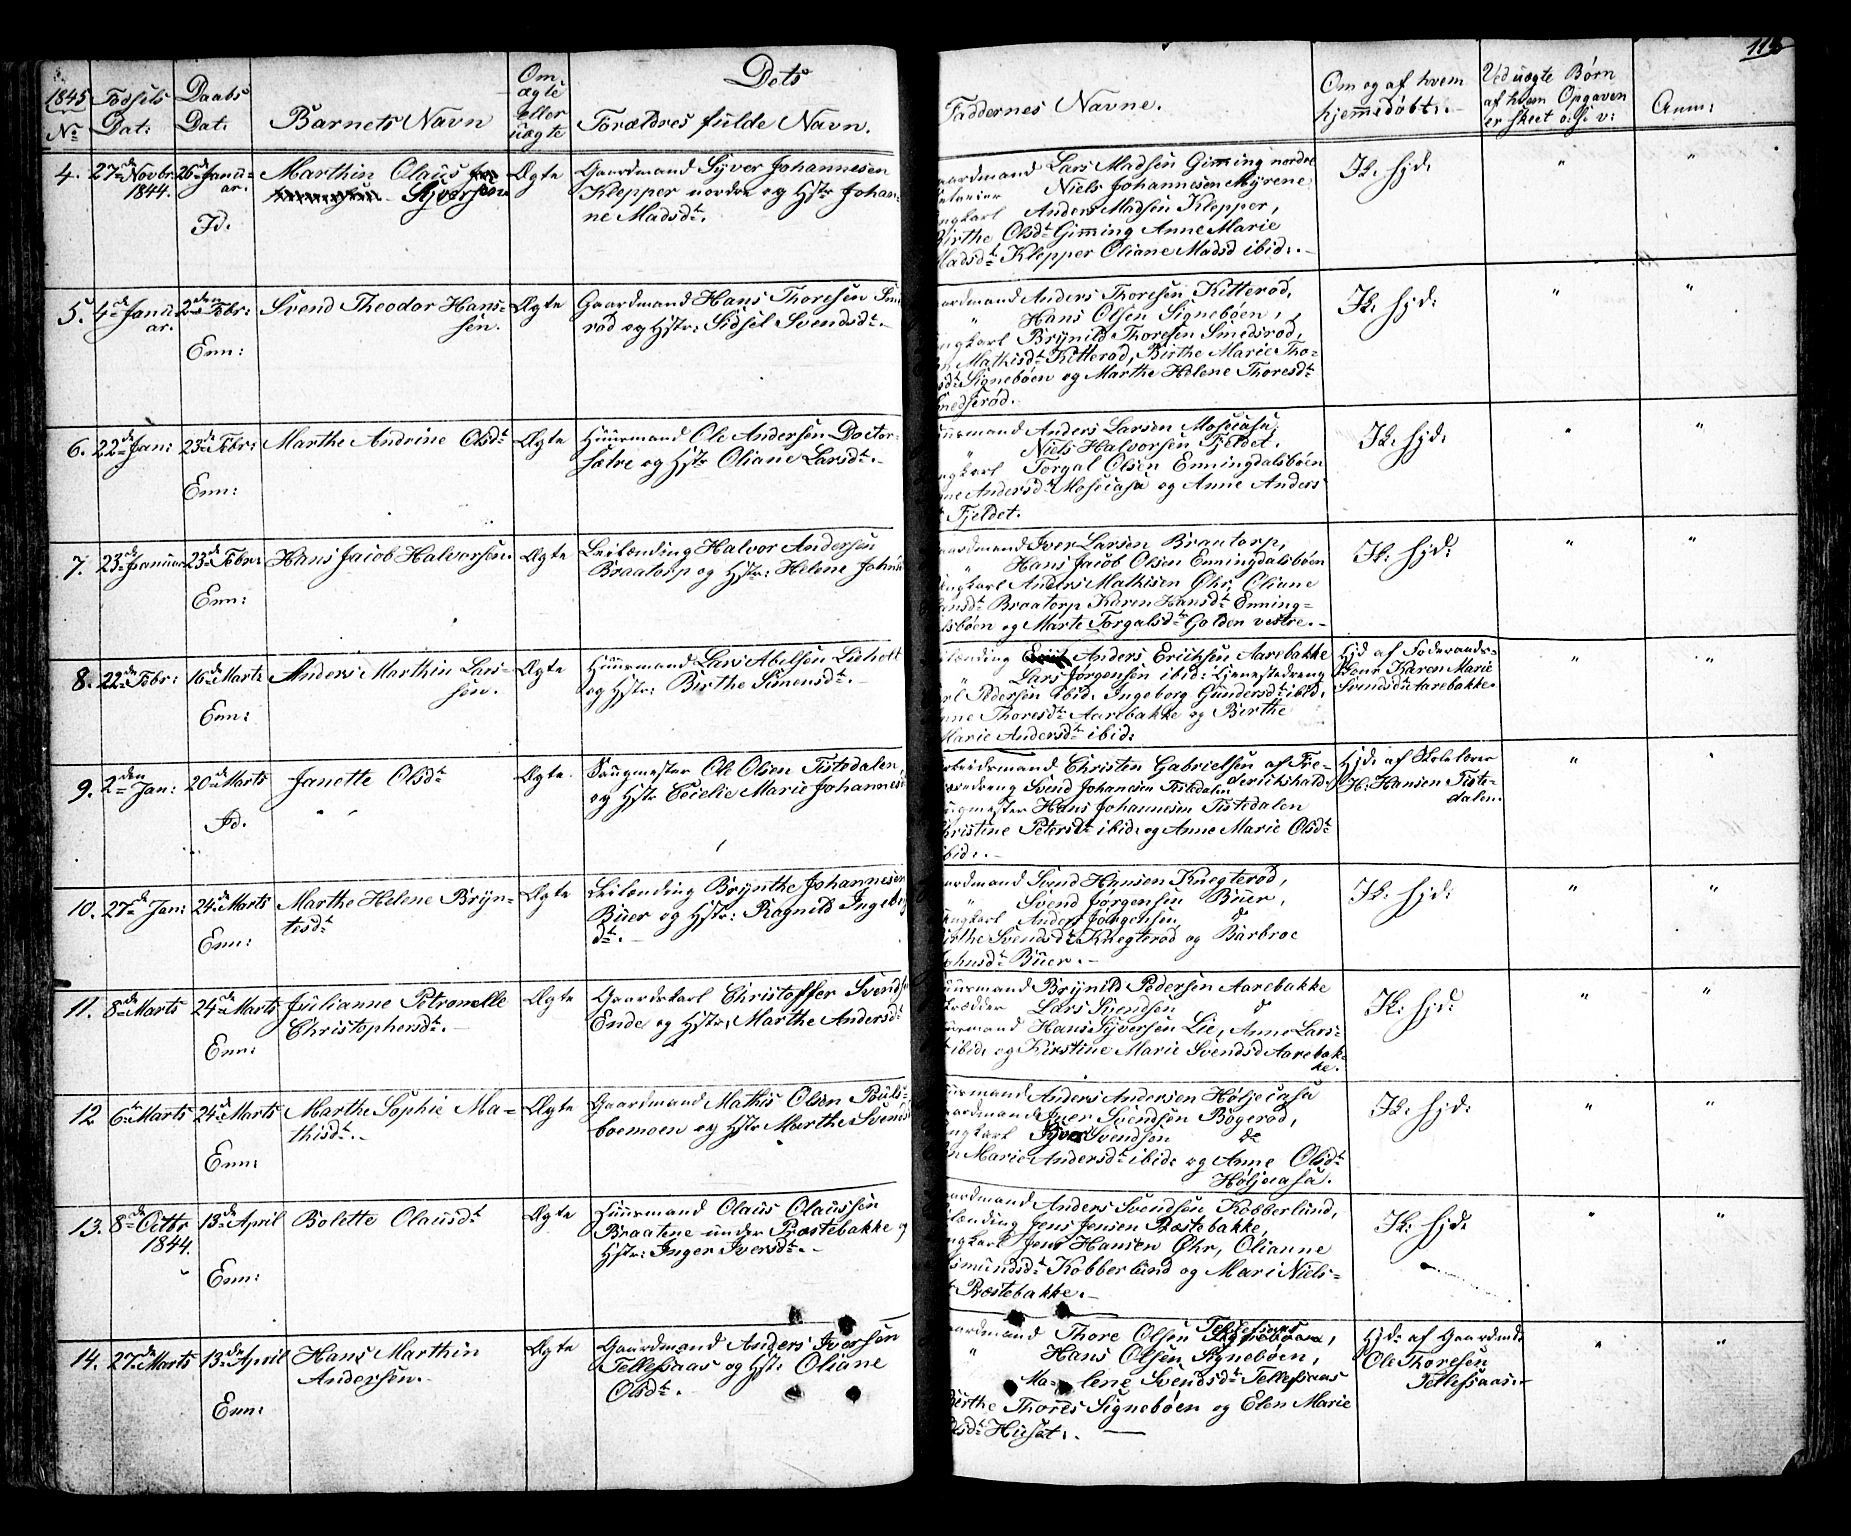 115
1845
No
Fødsels
Dat:
Daabs
Dat:
Barnets Navn
Om
ægte
eller
uægte
Dets
Forældres fulde Navn.
Faddernes Navne.
Om og af hvem
hjemmedøbt.
Ved uægte Børn
af hvem Opgaven
er skeet o: s: v:
Anm:
4. 27de Novbr. 1844. 26de Januar. Id.
Marthin Olaus
Syversen
Ægte
Gaardmand Syver Johannesen
Klepper nordre og Hstr Johan-
ne Madsdt.
aardmand Lars Madsen Gimming nordre
Niels Johannesen Myrene
ngkarl Anders Madsen Klepper,
Birthe Olsdt Gimming Anne Marie
Madsdt Klepper Oliane Madsd ibid:
Ik. hjd.
" "
5. 4de Januar. 2den Febr: Enn:
Svend Theodor Hans-
sen.
Ægte
Gaardmand Hans Thoresen Sme
rød og Hstr: Sidsel Svendsdt.
ardmand Anders Thoresen Kitterød,
" Hans Olsen Signebøen,
ngkarl Brynild Thoresen Smedsrød,
Mathisdt Kitterød, Birthe Marie Tho-
sdt Signebøen og Marthe Helene Thoresdt
medserød.
Ik. hjd:
" "
6. 22de Jan: 23de Febr: Enn:
Marthe Andrine Olsdt
Ægte
Huusmand Ole Andersen Doctor-
sætre og Hstr Oliane Larsdt.
uusmand Anders Larsen Mosecasa,
" Niels Halvorsen Fjeldet.
ngkarl Torgal Olsen Enningdalsbøen
ne Andersdt Mosecasa og Anne Anders
t Fjeldet.
Ik. hjd.
" "
7. 23de Januar 23de Febr: Enn:
Hans Jacob Halvorsen.
Ægte
Leilænding Halvor Andersen
Braatorp og Hstr: Helene Johns
aardmand Iver Larsen Braatorp,
" Hans Jacob Olsen Enningdalsbøen
ngkarl Anders Mathisen Øhr, Oliane
ansdt Braatorp Karen Hansdt Enning-
lsbøen og Marte Torgalsdt Golden vestre.
Ik: hjd:
" "
8. 22de Febr: 16de Marts Enn:
Anders Marthin Lars-
sen.
Ægte
Huusmand Lars Abelsen Lieholt
og Hstr: Birthe Simensdt.
ilænding Anders Erichsen Aarebakke
" Lars Jørgensen ibid: Tjenestedreng
rl Pedersen ibid. Ingeborg Gundersdt ibid:
nne Thoresdt Aarebakke og Birthe
Marie Andersdt ibid:
Hjd af Føderaads-
Kone Karen Marie
Svendsdt Aarebakke.
" "
9. 2den Jan: 20de Marts Id.
Janette Olsdt
Ægte
Saugmester Ole Olsen Tistedalen,
og Hstr Cecelie Marie Johannes
rbeidsmand Christen Gabrielsen af Fre-
derickshald.
dreng Svend Johansen Tistedalen
ugmester Hans Johannesen Tistedalen
hristine Petersdt ibid: og Anne Marie Olsdt
ibid:
Hjd: af Skolelærer
H: Hansen Tiste-
dalen.
" "
10. 27de Jan: 24de Marts Enn:
Marthe Helene Bryn-
tisdt
Ægte
Leilænding Brynthe Johannesen
Buer og Hstr: Ragnild Ingeb
dt.
ardmand Svend Hansen Knegterød,
" Svend Jørgensen Buer,
ngkarl Anders Jørgensen do
irthe Svendsdt Knegterød og Barbroe
ohnsdt Buer.
Ik. hjd:
" "
11. 8de Marts 24de Marts Enn:
Julianne Petronelle
Christophersdt.
Ægte
Gaardskarl Christoffer Svends
Ende og Hstr: Marthe Andersdt
uusmand Brynild Pedersen Aarebakke
Skrædder Lars Svendsen do
uusmand Hans Syversen Lie, Anne Lars-
t ibid: og Kirstine Marie Svendsd Aarebak-
ke.
Ik: hjd:
" "
12 6te Marts 24de Marts Enn:
Marthe Sophie Ma-
thisdt.
Ægte
Gaardmand Mathis Olsen Pouls-
boemoen og Hstr Marthe Svends
uusmand Anders Andersen Høljecasa
aardmand Iver Svendsen Bøgerød,
ngkarl Syver Svendsen do
n Marie Andersdt ibid: og Anne Olsdt
Høljecasa.
Ik: hjd:
" "
13. 8de Octbr 1844. 13de April Enn:
Bolette Olausdt
Ægte
Huusmand Olaus Olaussen
Braatene under Præstebakke og
Hstr: Inger Iversdt.
aardmand Anders Svendsen Kobberlund,
ilænding Jens Jensen Præstebakke,
ngkarl Jens Hansen Øhr, Olianne
smundsdt Kobberlund og Mari Niels-
t Præstebakke.
Ik: hjd:
" "
14. 27de Marts 13de April Enn:
Hans Marthin
Andersen.
Ægte
Gaardmand Anders Iversen
Tellefsaas og Hstr Oliane
Olsdt.
aardmand Thore Olsen Tellefsaas
" Hans Olsen Signebøen,
Ma- lene Svendsdt Tellefsaas
Birthe Thores Signebøen og Elen Marie
Olsdt Huset.
Hjd: af Gaardmd:
Ole Thoresen
Tellefsaas.
" "